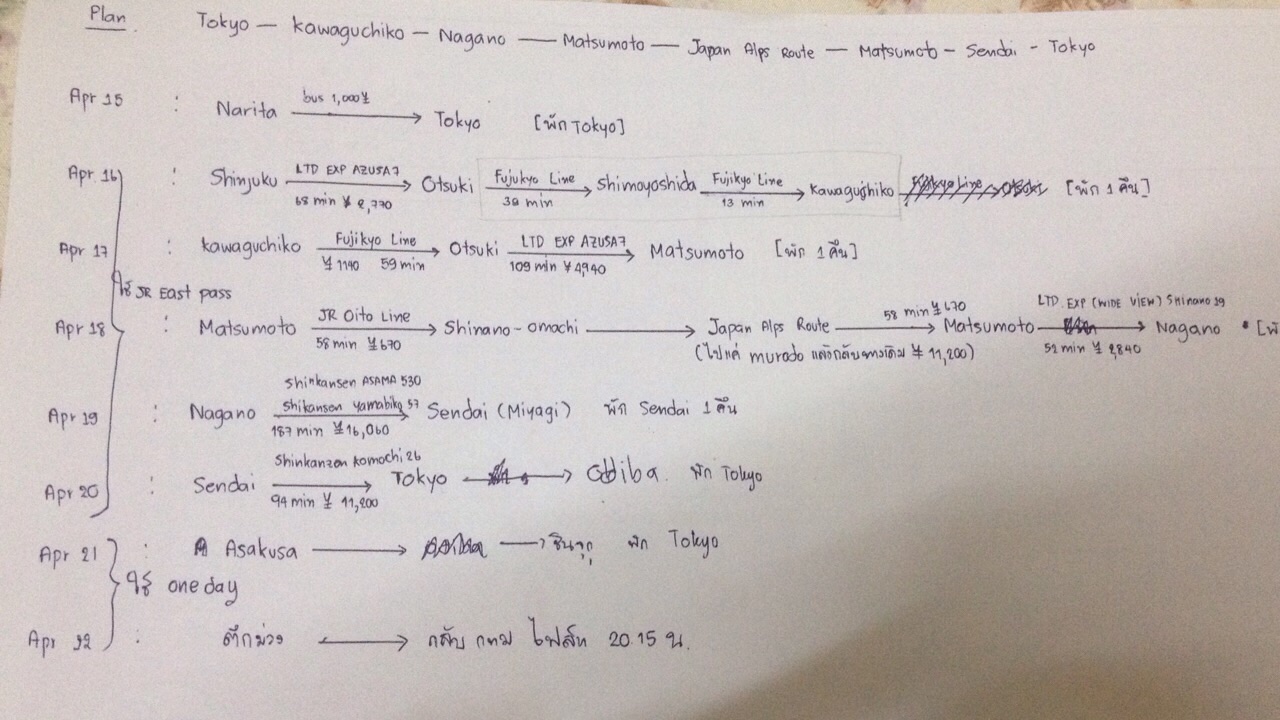 Plan Tokyo — Kawaguchiko — Nagano — Matsumoto — Japan Alps Route — Matsumoto - Sendai - Tokyo
Apr 15 : Narita bus 1,000¥ → Tokyo [พัก Tokyo]
LTD EXP AZUSA7 Fujukyo Line Fujikyo Line
Apr 16 : Shinjuku → Otsuki → Shimoyoshida → Kawaguchiko [พัก 1 คืน]
68 min ¥ 2,770 39 min 13 min
Fujikyo Line LTD EXP AZUSA7
Apr 17 : Kawaguchiko → Otsuki → Matsumoto [พัก 1 คืน]
¥ 1140 59 min 109 min ¥ 4,940
ใช้ JR East pass
JR Oito Line 58 min ¥670 LTD. EXP (WIDE VIEW) Shinano 19
Apr 18 : Matsumoto → Shinano-omachi → Japan Alps Route → Matsumoto → Nagano • [พั
58 min ¥670 (ไปแค่ murodo แล้วกลับทางเดิม ¥ 11,200) 52 min ¥ 2,840
Shinkansen ASAMA 530
Shikansen yamabiko 57
Apr 19 : Nagano → Sendai (Miyagi) พัก Sendai 1 คืน
187 min ¥16,060
Shinkanzen Komachi 26
Apr 20 : Sendai → Tokyo → Odiba พัก Tokyo
94 min ¥ 11,200
Apr 21 : Asakusa → → ชินจุกุ พัก Tokyo
ใช้ one day
Apr 22 : ตึกม่วง → กลับ กทม ไฟล์ท 20.15 น.